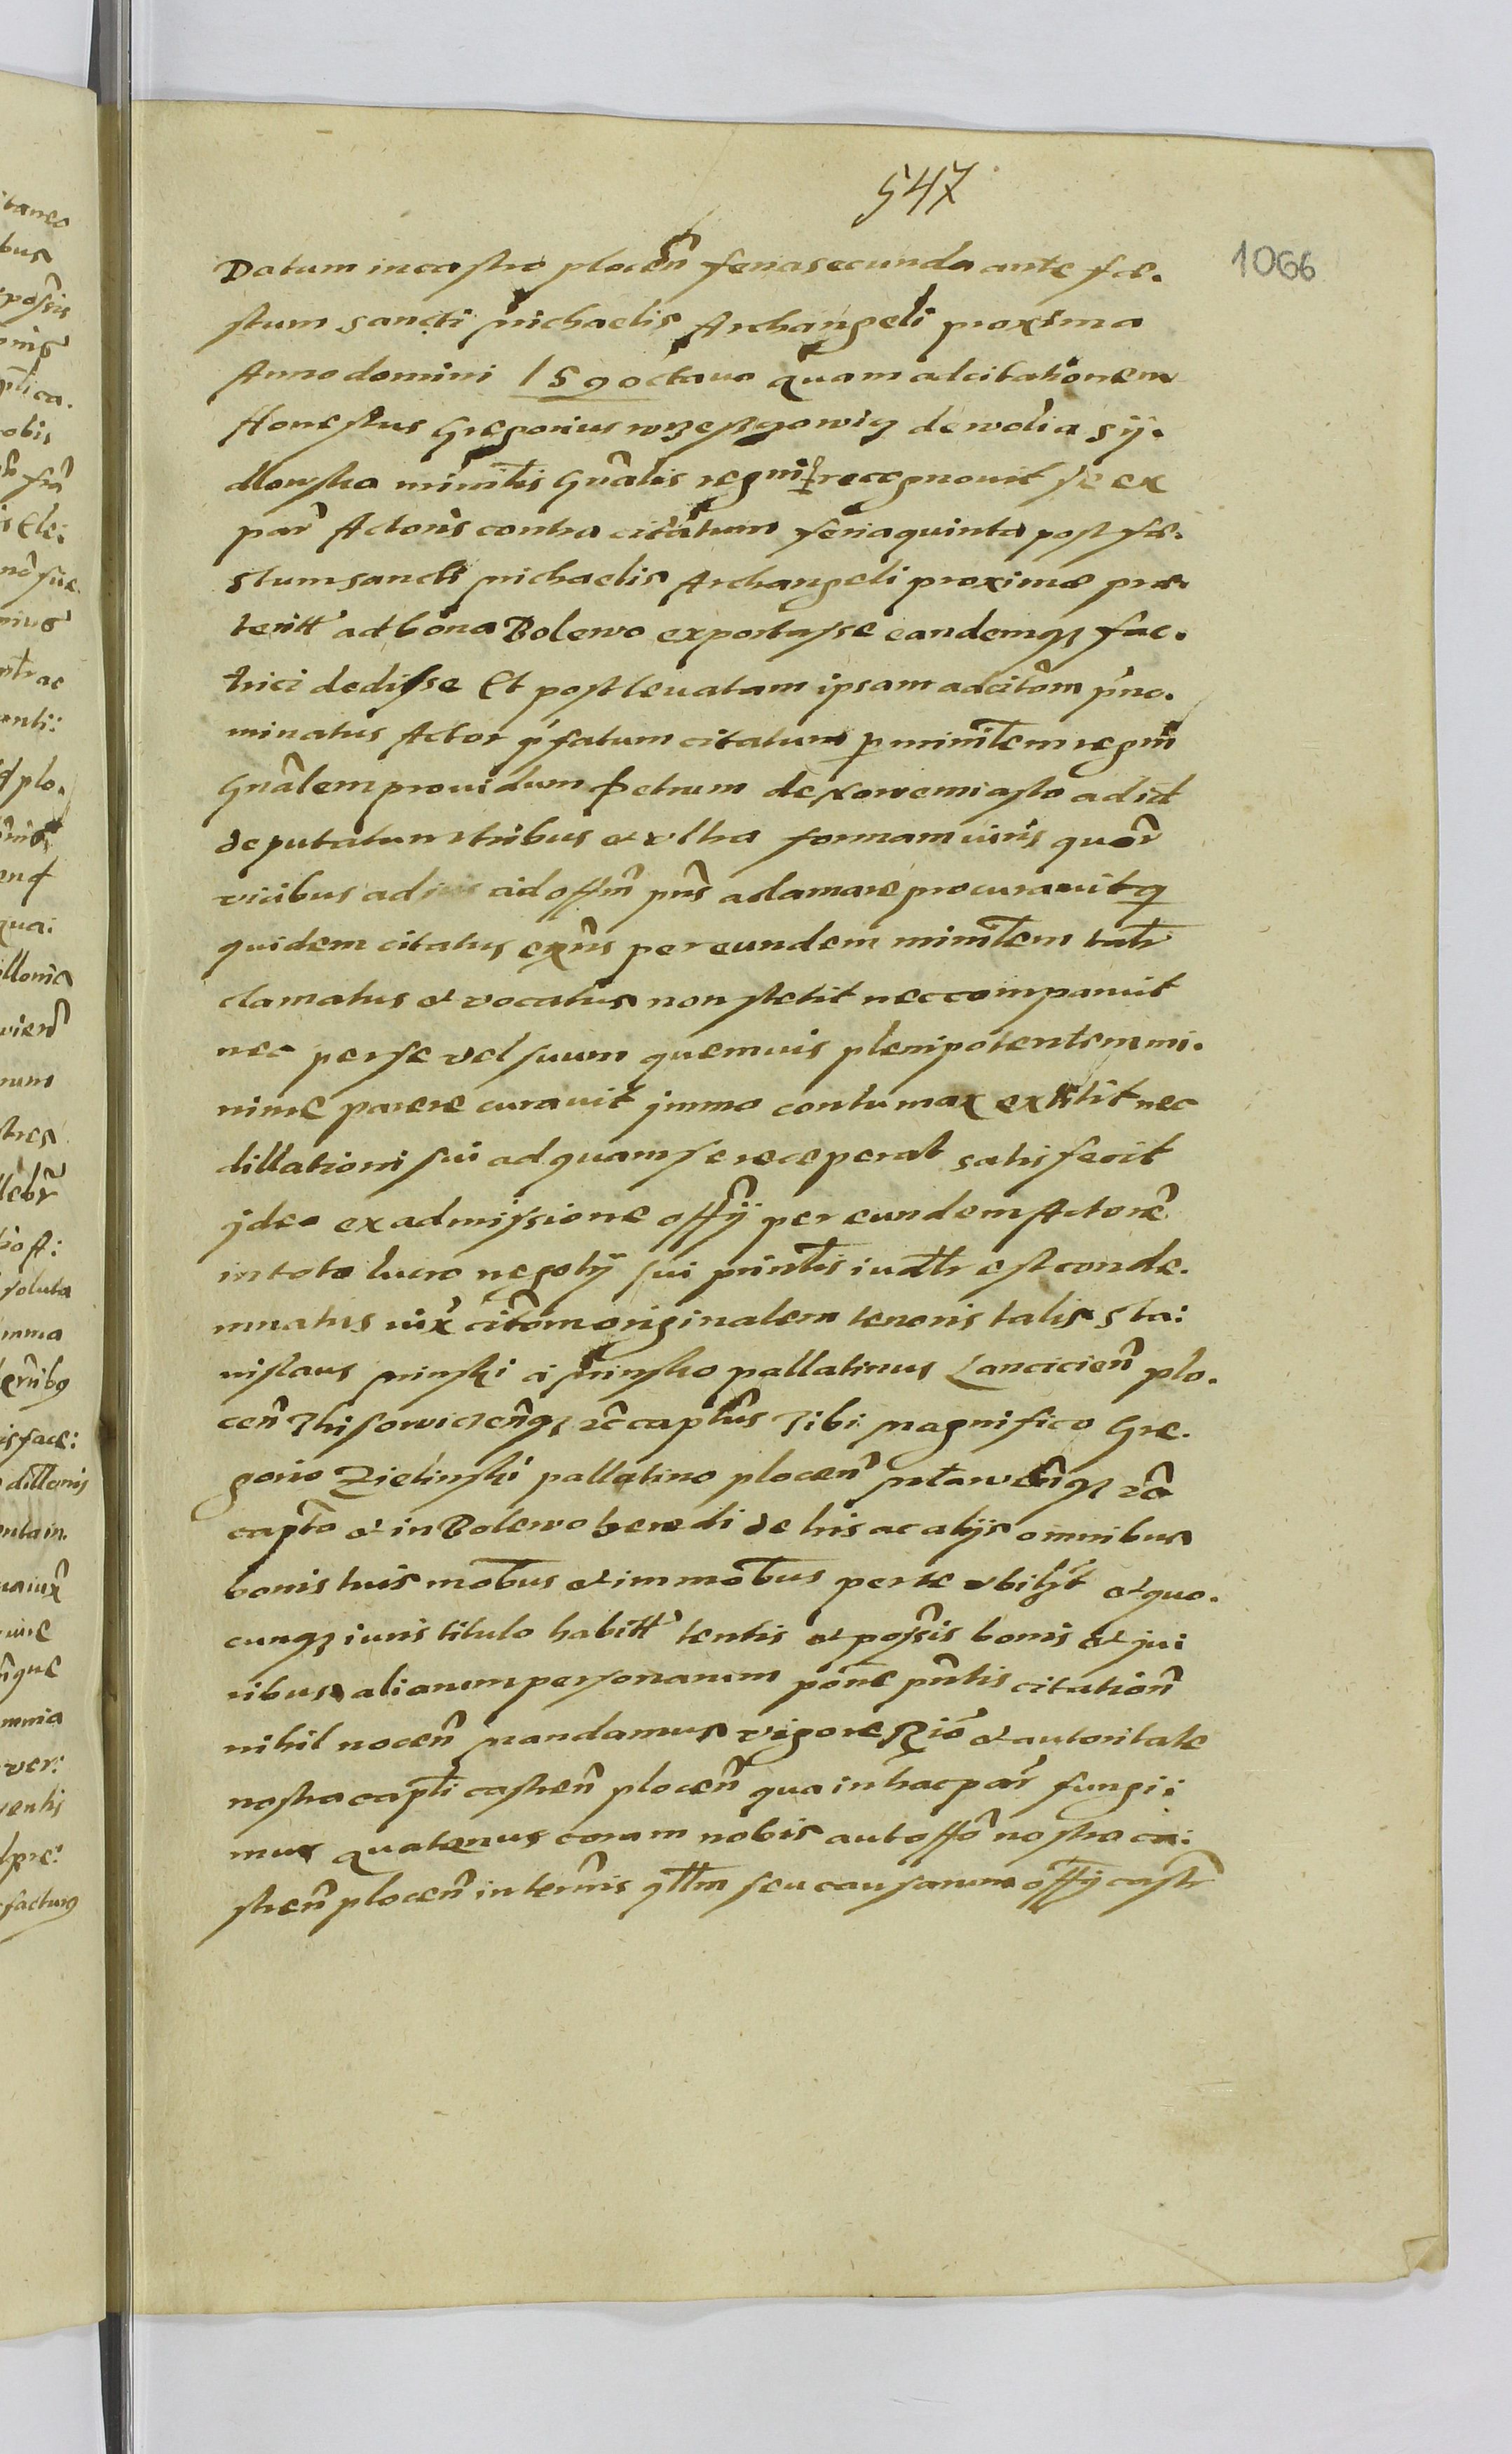 547
1066
Datum in castro plocen̄ feria secunda ante fe.
stum sancti Michaelis Archangeli proxima
Anno domini 159 octauo Quam adcitationem
Honestus Gregorius de wolia sÿ.
dlowska ministis Gnâlis regni recognouit se ex
par̄ Actoris contra citatum feria quinta post fe.
stum sancti Michaelis Archangeli proxime præ.
teritt' ad bona Bolewo exportasse eandemq₃ fac.
trici dedisse Et post leuatam ipsam adcitôm p'no.
minatus Actor p'fatum citatum p minirlem regni
Gnâlem prouidum Petrum de Nowemiasto ad id
deputatum tribus et vltra formam iuris quar̄
vicibus ad offm̄ pn̄s adamare procurauit q
quidem citatus exn̄s per eundem minirlem talr̄
clamatus et vocatus non stetit nec comparuit
nec per se vel suum quemuis plenipotentem mi.
nime parere curauit jmmo contumax extitit nec
dillationi sui ad quam se receperat satisfecit
jdeo ex admissione offÿ per eundem Actorē
in toto lucro negotÿ sui prinlis iudlr est conde.
mnatus iux̄ citôm originalem tenoris talis Sta:
nislaus Minski a Minsko pallatinus Lancicien̄ plo.
cen̄ Thisowicien̄q₃ rc̄ captn̄s Tibi Magnifico Gre.
gorio Zielinski pallatino plocen̄ Mławen̄q₃ rc̄
capt̄o et in Bolewo heredi de his ac alijs omnibus
bonis tuis mob̄us et immob̄us per te vbilz̄t et quo.
cunq₃ iuris titulo habitt' tentis et poss̄is bonis et jui
ribus aliarum personarum pōne pn̄tis citation̄
nihil nocen̄ Mandamus vigore Rīō et autoritate
nostra capt̄i castren̄ plocen̄ qua in hac par̄ fungi:
mur Quatenus coram nobis aut offō nostro ca:
stren̄ plocen̄ in termīs qllm̄ seu causarum offÿ castr̄